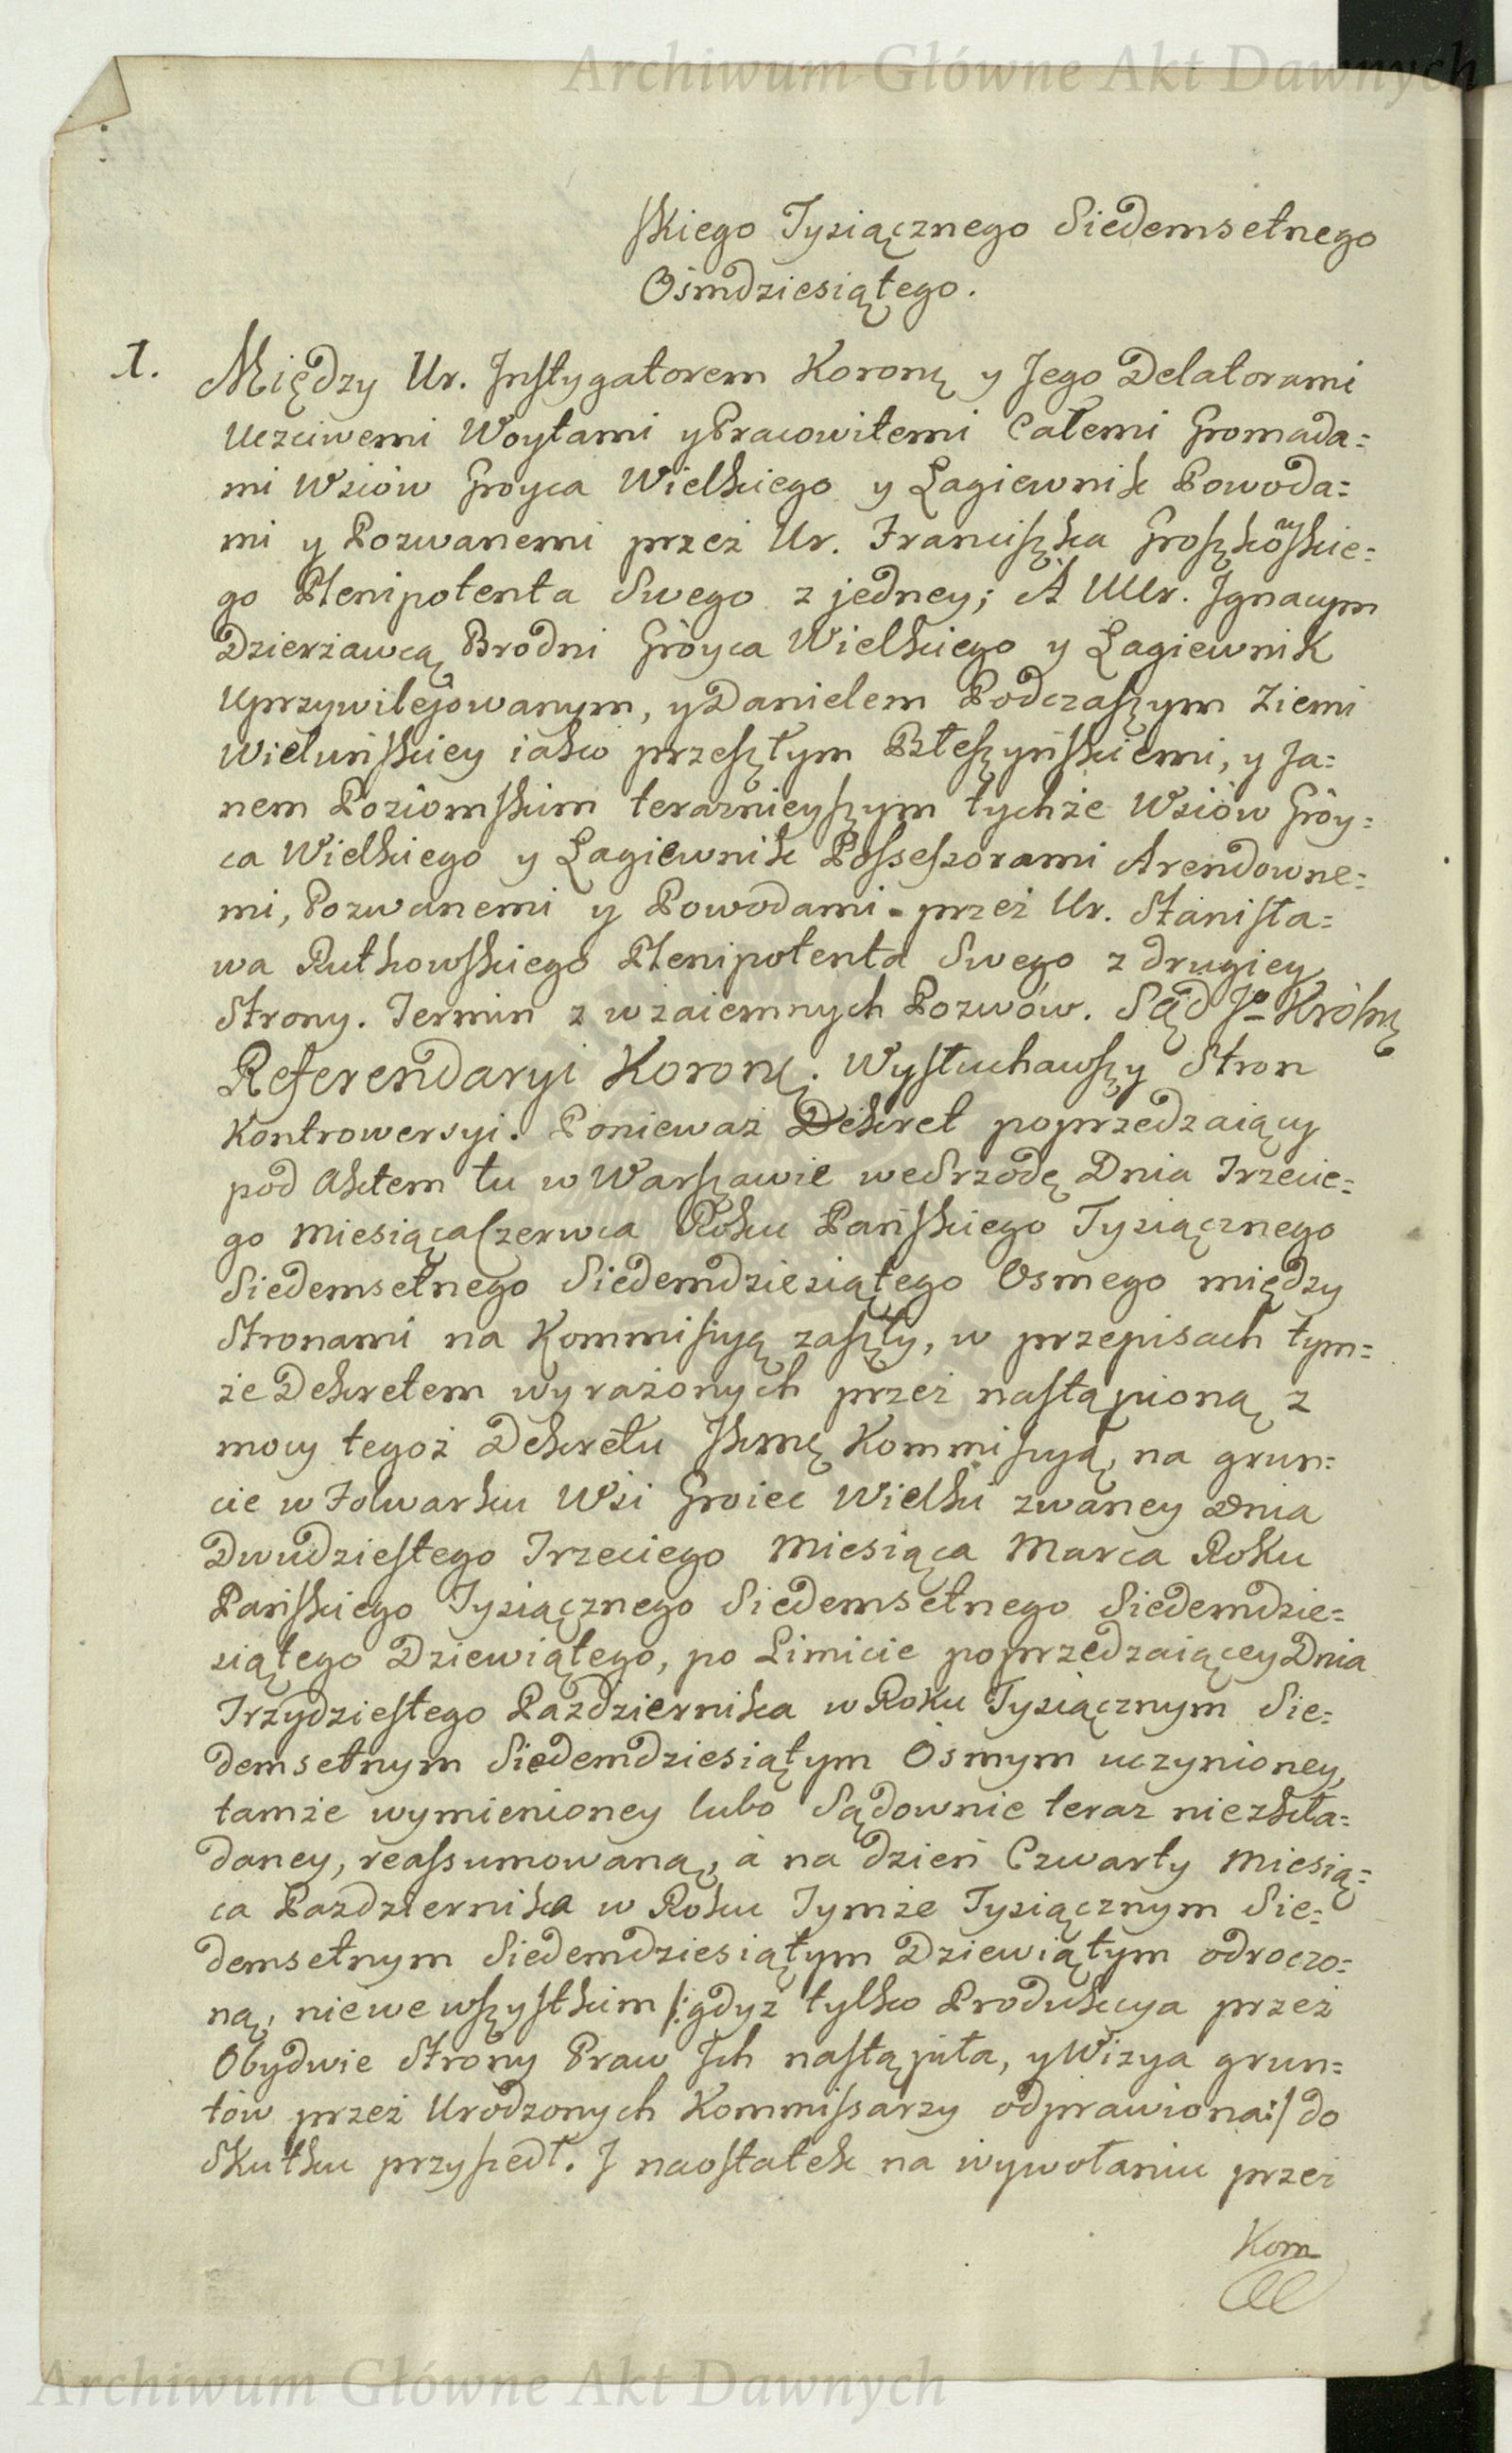 Archiwum Główne Akt Dawnych
skiego Tysiącznego Siedemsetnego
Ośmdziesiątego.
1. Między Ur. Instygatorem Koronę y Jego Delatorami
Uczciwemi Woytami y Pracowitemi Całemi Gromada=
mi Wsiów Groyca Wielkiego y Łagiewnik Powoda=
mi y Pozwanemi przez Ur. Franciszka Groszkowskie=
go Plenipotenta Swego z jedney; A UUr. Ignacym
Dzierzawcą Brodni Gròyca Wielkiego y Łagiewnik
Uprzywilejowanym, y Danielem Podczaszym Ziemi
Wieluńskiey iako przeszłym Błeszyńskiemi, y Ja=
nem Poziomskim teraznieyszym tychże Wsiów Gròy=
ca Wielkiego y Łagiewnik Possessorami Arendowne=
mi, Pozwanemi y Powodami przez Ur. Stanisła=
wa Rutkowskiego Plenipotenta Swego z drugiey
Strony. Termin z wzaiemnych Pozwów. Sąd Jo Królę
Referendaryi Koronę. Wysłuchawszy Stron
Kontrowersyi. Ponieważ Dekret poprzedzaiący
pod Aktem tu w Warszawie we Srzodę Dnia Trzecie=
go Miesiąca Czerwca Roku Pańskiego Tysiącznego
Siedemsetnego Siedemdziesiątego Osmego między
Stronami na Kommissyą zaszły, w przepisach tym=
że Dekretem wyrażonych przez nastąpioną z
mocy tegoż Dekretu Jkmę Kommissyą, na grun=
cie w Folwarku Wsi Groiec Wielki zwaney Dnia
Dwudziestego Trzeciego Miesiąca Marca Roku
Pańskiego Tysiącznego Siedemsetnego Siedemdzie=
siątego Dziewiątego, po Limicie poprzedzaiącey Dnia
Trzydziestego Pazdziernika w Roku Tysiącznym Sie=
demsetnym Siedemdziesiątym Osmym uczynioney,
tamże wymienioney lubo Sądownie teraz niezkła=
daney, reassumowaną, à na dzień Czwarty Miesią=
ca Pazdziernika w Roku Tymże Tysiącznym Sie=
demsetnym Siedemdziesiątym Dziewiątym odroczo=
ną, niewewszystkim /:gdyż tylko Produkcya przez
Obydwie Strony Praw Ich nastąpiła, y Wizya grun=
tów przez Urodzonych Kommissarzy odprawiona:/ do
Skutku przyszedł. I naostatek na wywołaniu przez
Kom
Archiwum Główne Akt Dawnych